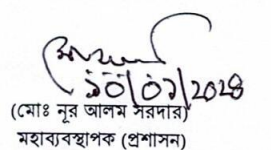 ১০/০১/২০২৪
(মোঃ নূর আলম সরদার)
মহাব্যবস্থাপক (প্রশাসন)